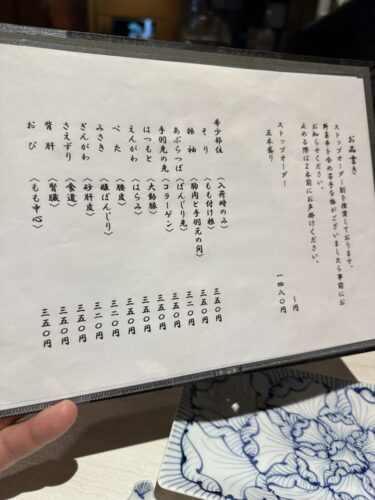 お品書き
ストップオーダー制を推奨しております。
野菜串を含め苦手な物がございましたら事前にお
知らせください。
止める際は2本前にお声掛けください。
~円
ストップオーダー
五本盛り 一四八〇円
希少部位 〈入荷時のみ〉
そり 〈もも付け根〉 三五〇円
振袖 〈胸肉と手羽元の間〉 三五〇円
あぶらつぼ 〈ぼんじり先〉 三二〇円
手羽先の先 〈コラーゲン〉 三五〇円
はつもと 〈大動脈〉 三五〇円
えんがわ 〈はらみ〉 三五〇円
べた 〈腰皮〉 三五〇円
みさき 〈雌ぼんじり〉 三二〇円
ぎんがわ 〈砂肝皮〉 三二〇円
さえずり 〈食道〉 三五〇円
背肝 〈腎臓〉 三五〇円
おび 〈もも中心〉 三五〇円